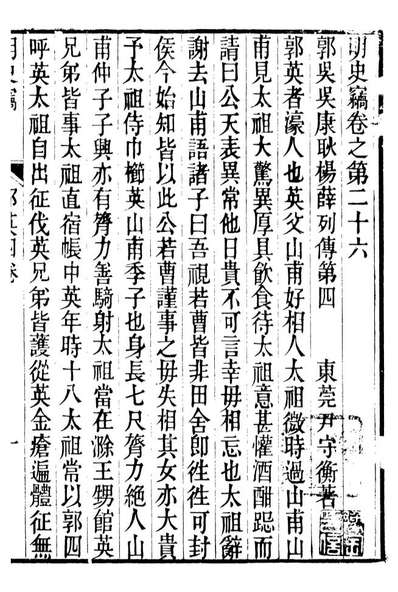 明史竊卷之第二十六
郭吳吳康耿楊薛列傳第四 東莞尹守衡著
郭英者濠人也英父山甫好相人太祖微時過山甫山
甫見太祖大驚異厚具飲食待太祖意甚懽酒酣跽而
請曰公天表異常他日貴不可言幸毋相忘也太祖辭
謝去山甫語諸子曰吾視若曹皆非田舍郎徃徃可封
侯今始知皆以此公若曹謹事之毋失相其女亦大貴
予太祖侍巾櫛英山甫季子也身長七尺膂力絕人山
甫仲子子興亦有膂力善騎射太祖當在滁王甥館英
兄弟皆事太祖直宿帳中英年時十八太祖常以郭四
呼英太祖自出征伐英兄弟皆護從英金瘡遍體征無